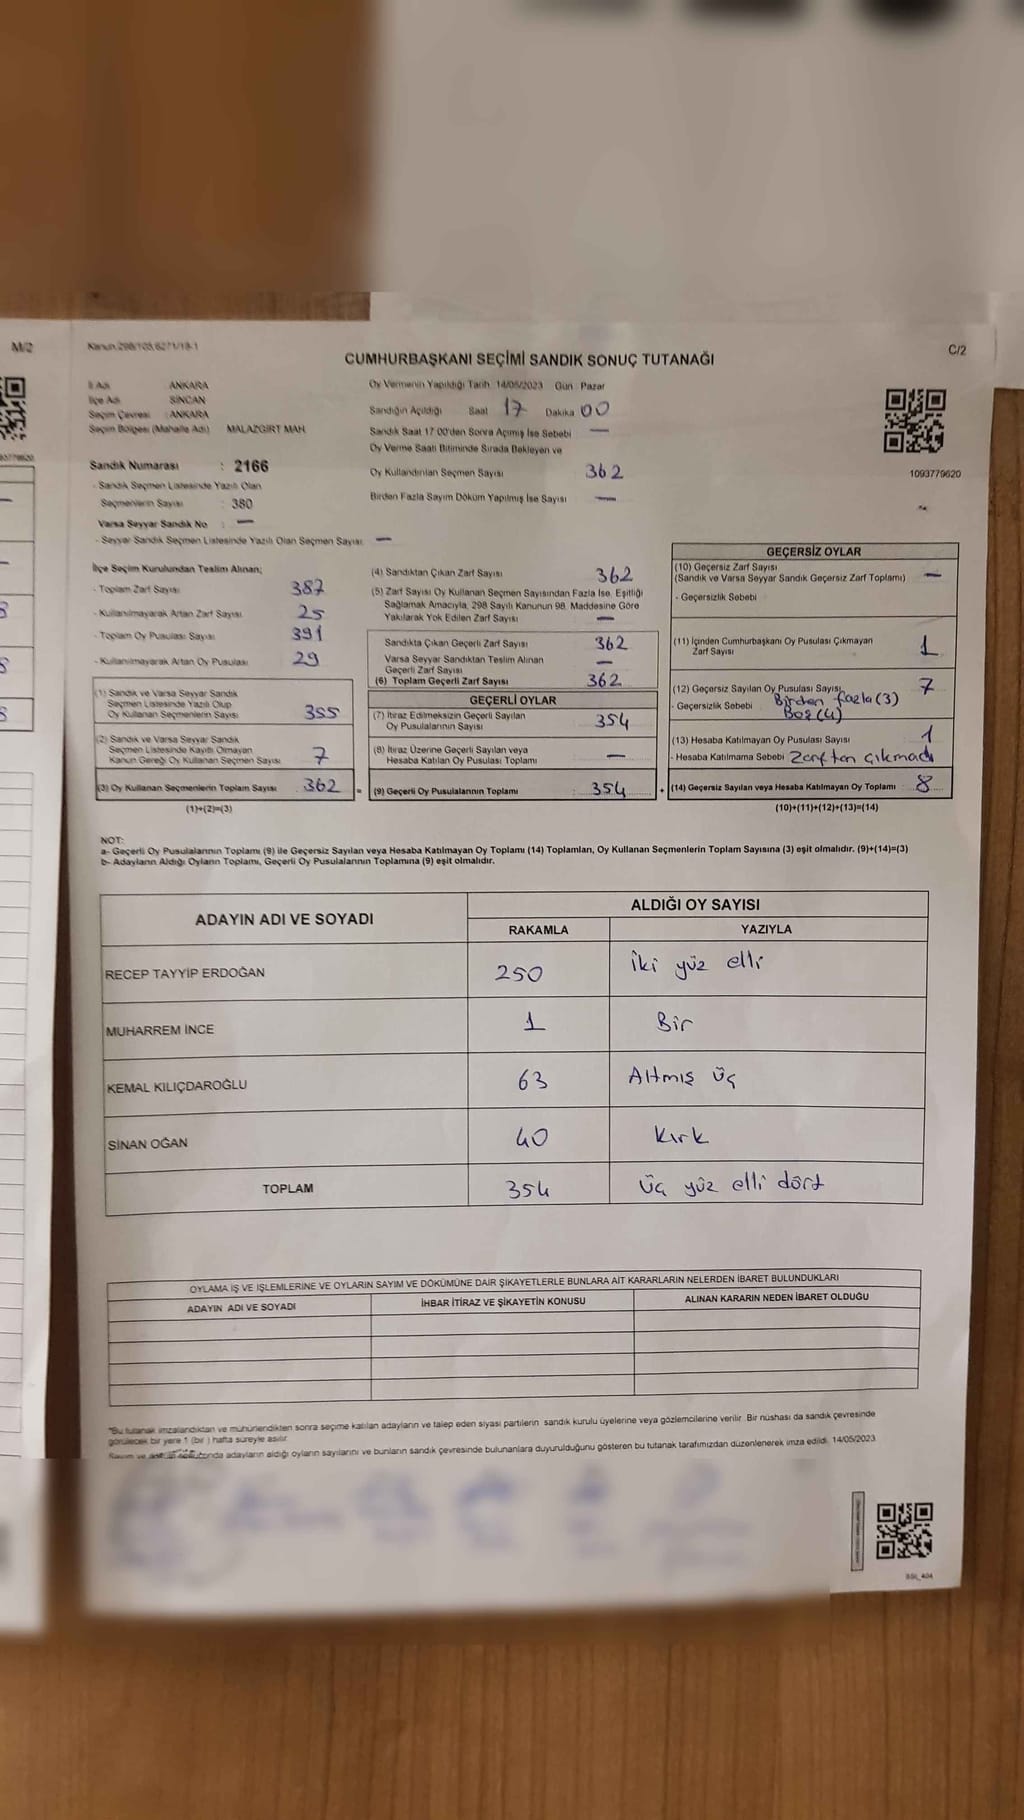 M/2
Kanun:298/105,6271/18-1
C/2
CUMHURBAŞKANI SEÇİMİ SANDIK SONUÇ TUTANAĞI
İl Adı ANKARA
İlçe Adı SİNCAN
Seçim Çevresi : ANKARA
Seçim Bölgesi (Mahalle Adı) MALAZGİRT MAH.
Sandık Numarası : 2166
- Sandık Seçmen Listesinde Yazılı Olan
Seçmenlerin Sayısı : 380
Varsa Seyyar Sandık No : —
- Seyyar Sandık Seçmen Listesinde Yazılı Olan Seçmen Sayısı: —
Oy Vermenin Yapıldığı Tarih: 14/05/2023 Gün: Pazar
Sandığın Açıldığı Saat 17 Dakika 00
Sandık Saat 17:00'den Sonra Açımış İse Sebebi —
Oy Verme Saati Bitiminde Sırada Bekleyen ve
Oy Kullandırılan Seçmen Sayısı 362
Birden Fazla Sayım Döküm Yapılmış İse Sayısı —
1093779620
İlçe Seçim Kurulundan Teslim Alınan;
- Toplam Zarf Sayısı 387
- Kullanılmayarak Artan Zarf Sayısı 25
- Toplam Oy Pusulası Sayısı 391
- Kullanılmayarak Artan Oy Pusulası 29
(1) Sandık ve Varsa Seyyar Sandık
Seçmen Listesinde Yazılı Olup
Oy Kullanan Seçmenlerin Sayısı 355
(2) Sandık ve Varsa Seyyar Sandık
Seçmen Listesinde Kayıtlı Olmayan
Kanun Gereği Oy Kullanan Seçmen Sayısı 7
(3) Oy Kullanan Seçmenlerin Toplam Sayısı 362 =
(1)+(2)=(3)
(4) Sandıktan Çıkan Zarf Sayısı 362
(5) Zarf Sayısı Oy Kullanan Seçmen Sayısından Fazla İse, Eşitliği
Sağlamak Amacıyla, 298 Sayılı Kanunun 98. Maddesine Göre
Yakılarak Yok Edilen Zarf Sayısı —
Sandıkta Çıkan Geçerli Zarf Sayısı 362
Varsa Seyyar Sandıktan Teslim Alınan
Geçerli Zarf Sayısı —
(6) Toplam Geçerli Zarf Sayısı 362
GEÇERLİ OYLAR
(7) İtiraz Edilmeksizin Geçerli Sayılan
Oy Pusulalarının Sayısı 354
(8) İtiraz Üzerine Geçerli Sayılan veya
Hesaba Katılan Oy Pusulası Toplamı —
(9) Geçerli Oy Pusulalarının Toplamı : 354 +
GEÇERSİZ OYLAR
(10) Geçersiz Zarf Sayısı
(Sandık ve Varsa Seyyar Sandık Geçersiz Zarf Toplamı) —
- Geçersizlik Sebebi
(11) İçinden Cumhurbaşkanı Oy Pusulası Çıkmayan
Zarf Sayısı 1
(12) Geçersiz Sayılan Oy Pusulası Sayısı 7
- Geçersizlik Sebebi Birden fazla (3)
Boş (4)
(13) Hesaba Katılmayan Oy Pusulası Sayısı 1
- Hesaba Katılmama Sebebi Zarftan çıkmadı
(14) Geçersiz Sayılan veya Hesaba Katılmayan Oy Toplamı : 8
(10)+(11)+(12)+(13)=(14)
NOT:
a- Geçerli Oy Pusulalarının Toplamı (9) ile Geçersiz Sayılan veya Hesaba Katılmayan Oy Toplamı (14) Toplamları, Oy Kullanan Seçmenlerin Toplam Sayısına (3) eşit olmalıdır. (9)+(14)=(3)
b- Adayların Aldığı Oyların Toplamı, Geçerli Oy Pusulalarının Toplamına (9) eşit olmalıdır.
ADAYIN ADI VE SOYADI ALDIĞI OY SAYISI
RAKAMLA YAZIYLA
RECEP TAYYİP ERDOĞAN 250 İki yüz elli
MUHARREM İNCE 1 Bir
KEMAL KILIÇDAROĞLU 63 Altmış üç
SİNAN OĞAN 40 Kırk
TOPLAM 354 Üç yüz elli dört
OYLAMA İŞ VE İŞLEMLERİNE VE OYLARIN SAYIM VE DÖKÜMÜNE DAİR ŞİKAYETLERLE BUNLARA AİT KARARLARIN NELERDEN İBARET BULUNDUKLARI
ADAYIN ADI VE SOYADI İHBAR İTİRAZ VE ŞİKAYETİN KONUSU ALINAN KARARIN NEDEN İBARET OLDUĞU
*Bu tutanak imzalandıktan ve mühürlendikten sonra seçime katılan adayların ve talep eden siyasi partilerin sandık kurulu üyelerine veya gözlemcilerine verilir. Bir nüshası da sandık çevresinde
görülecek bir yere 1 (bir ) hafta süreyle asılır.
adayların aldığı oyların sayılarını ve bunların sandık çevresinde bulunanlara duyurulduğunu gösteren bu tutanak tarafımızdan düzenlenerek imza edildi. 14/05/2023